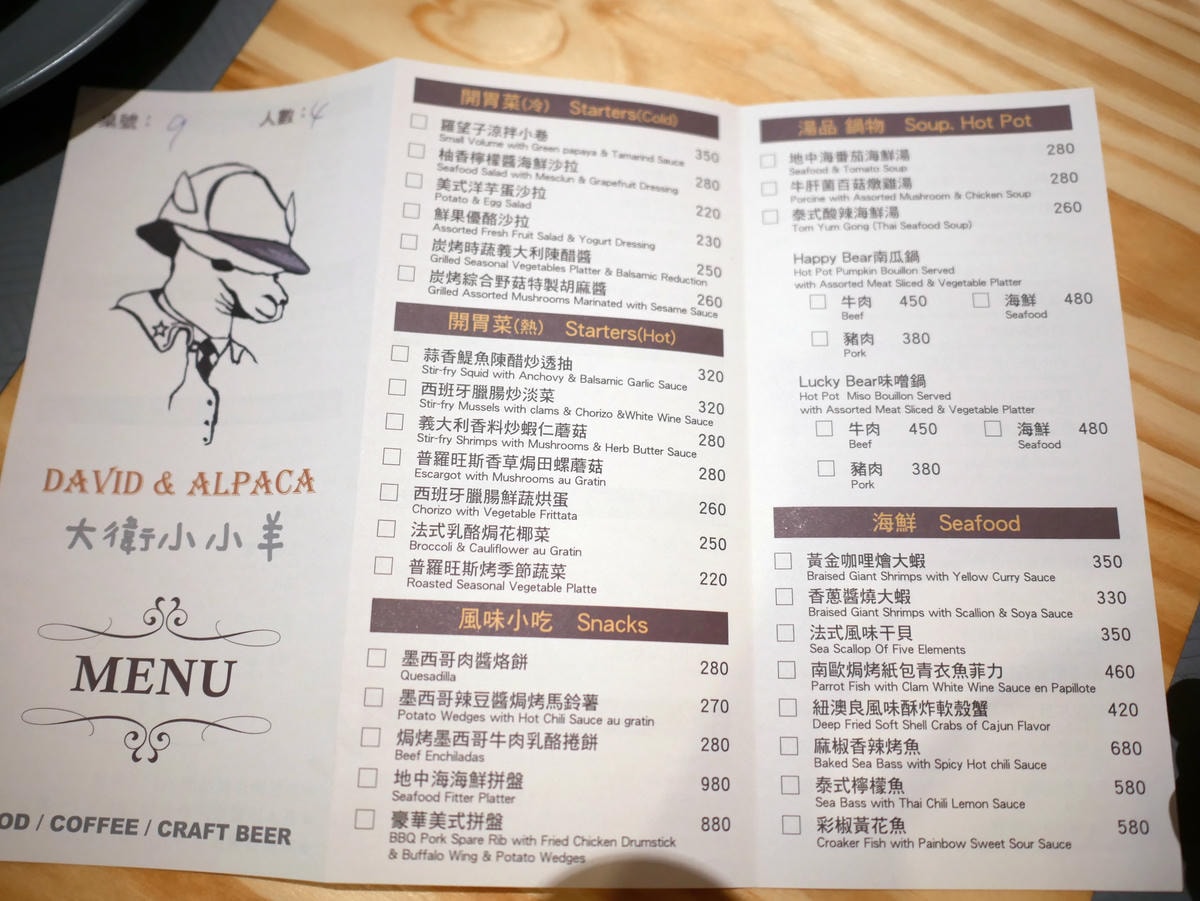 桌號： 9 人數：4
DAVID & ALPACA
大衛小小羊
MENU
OD / COFFEE / CRAFT BEER
開胃菜(冷) Starters(Cold)
羅望子涼拌小卷 350
Small Volume with Green papaya & Tamarind Sauce
柚香檸檬醬海鮮沙拉 280
Seafood Salad with Mesclun & Grapefruit Dressing
美式洋芋蛋沙拉 220
Potato & Egg Salad
鮮果優酪沙拉 230
Assorted Fresh Fruit Salad & Yogurt Dressing
炭烤時蔬義大利陳醋醬 250
Grilled Seasonal Vegetables Platter & Balsamic Reduction
炭烤綜合野菇特製胡麻醬 260
Grilled Assorted Mushrooms Marinated with Sesame Sauce
開胃菜(熱) Starters(Hot)
蒜香鯷魚陳醋炒透抽 320
Stir-fry Squid with Anchovy & Balsamic Garlic Sauce
西班牙臘腸炒淡菜 320
Stir-fry Mussels with clams & Chorizo &White Wine Sauce
義大利香料炒蝦仁蘑菇 280
Stir-fry Shrimps with Mushrooms & Herb Butter Sauce
普羅旺斯香草焗田螺蘑菇 280
Escargot with Mushrooms au Gratin
西班牙臘腸鮮蔬烘蛋 260
Chorizo with Vegetable Frittata
法式乳酪焗花椰菜 250
Broccoli & Cauliflower au Gratin
普羅旺斯烤季節蔬菜 220
Roasted Seasonal Vegetable Platte
風味小吃 Snacks
墨西哥肉醬烙餅 280
Quesadilla
墨西哥辣豆醬焗烤馬鈴薯 270
Potato Wedges with Hot Chili Sauce au gratin
焗烤墨西哥牛肉乳酪捲餅 280
Beef Enchiladas
地中海海鮮拼盤 980
Seafood Fitter Platter
豪華美式拼盤 880
BBQ Pork Spare Rib with Fried Chicken Drumstick
& Buffalo Wing & Potato Wedges
湯品 鍋物 Soup. Hot Pot
地中海番茄海鮮湯 280
Seafood & Tomato Soup
牛肝菌百菇燉雞湯 280
Porcine with Assorted Mushroom & Chicken Soup
泰式酸辣海鮮湯 260
Tom Yum Gong (Thai Seafood Soup)
Happy Bear南瓜鍋
Hot Pot Pumpkin Bouillon Served
with Assorted Meat Sliced & Vegetable Platter
牛肉 450 海鮮 480
Beef Seafood
豬肉 380
Pork
Lucky Bear味噌鍋
Hot Pot Miso Bouillon Served
with Assorted Meat Sliced & Vegetable Platter
牛肉 450 海鮮 480
Beef Seafood
豬肉 380
Pork
海鮮 Seafood
黃金咖哩燴大蝦 350
Braised Giant Shrimps with Yellow Curry Sauce
香蔥醬燒大蝦 330
Braised Giant Shrimps with Scallion & Soya Sauce
法式風味干貝 350
Sea Scallop Of Five Elements
南歐焗烤紙包青衣魚菲力 460
Parrot Fish with Clam White Wine Sauce en Papillote
紐澳良風味酥炸軟殼蟹 420
Deep Fried Soft Shell Crabs of Cajun Flavor
麻椒香辣烤魚 680
Baked Sea Bass with Spicy Hot chili Sauce
泰式檸檬魚 580
Sea Bass with Thai Chili Lemon Sauce
彩椒黃花魚 580
Croaker Fish with Painbow Sweet Sour Sauce